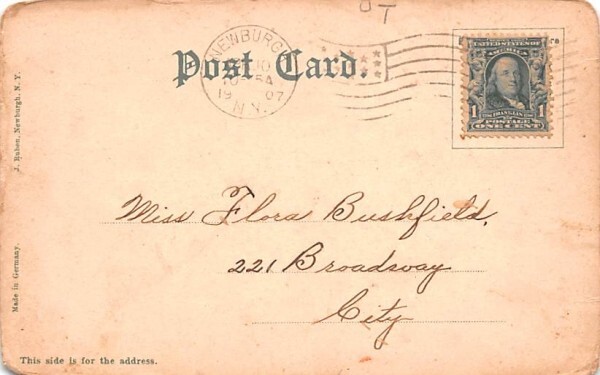 NEWBURGH
19 07
N.Y.
Post Card.
UNITED STATES OF
AMERICA
1 FRANKLIN 1
POSTAGE
ONE CENT
J. Ruben, Newburgh, N. Y.
Miss Flora Bushfield,
221 Broadway
City
Made in Germany.
This side is for the address.